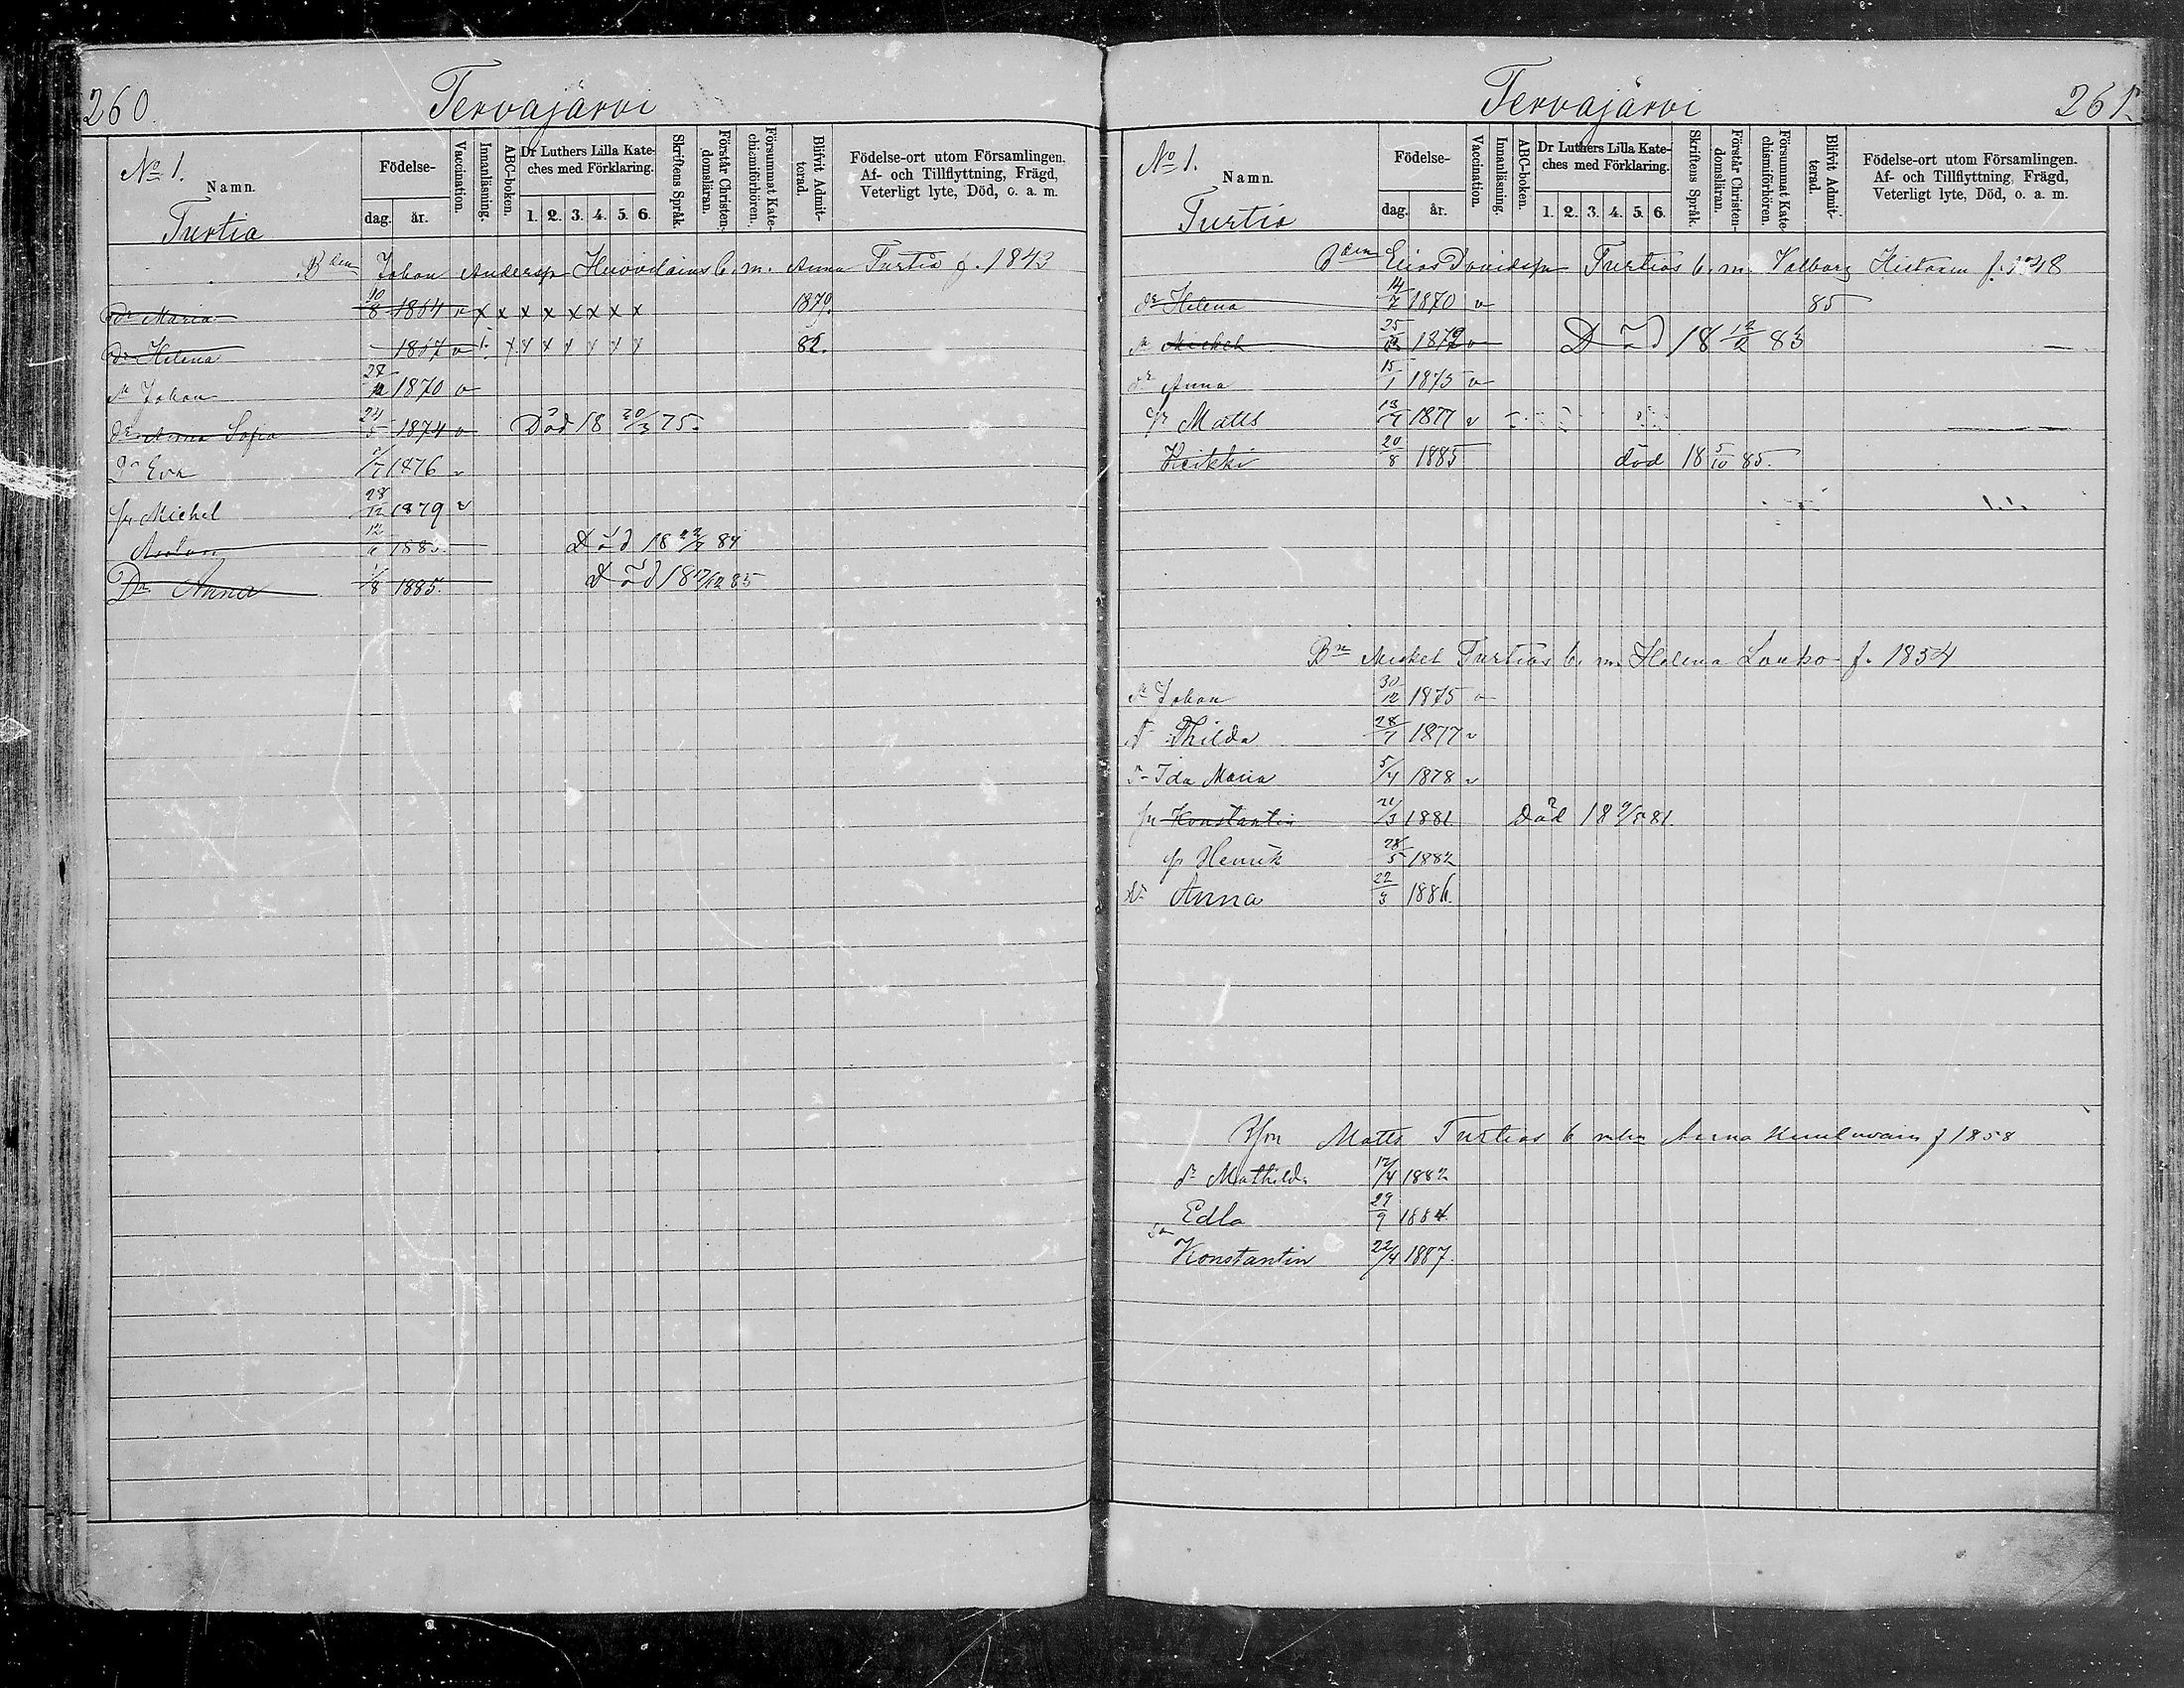 260.
Tervajärvi
No 1.
Namn.
Turtia
Födelse-
dag. år.
Vaccination.
Innanläsning.
ABC-boken.
Dr Luthers Lilla Kate-
ches med Förklaring.
1. 2. 3. 4. 5. 6.
Skriftens Språk.
Förstår Christen-
domsläran.
Försummat Kate-
chismiförhören.
Blifvit Admit-
terad.
Födelse-ort utom Församlingen.
Af- och Tillflyttning, Frägd,
Veterligt lyte, Död, o. a. m.
Bden Johan Andersn Huovilains b. m. Anna Turtia f. 1843
dr Maria 10/8 1864 v x x x x x x x x 1879.
dr Helena 1867 v x x x x x x x 82.
Johan 1870 v
dr Anna Sofia 24/5 1874 v Död 18 20/3 75.
Dr Eva /7 1876 v
Michel 28/12 1879 v
188 Död 18 84
Dr Anna 1/8 1885. Död 18 17/12 85
Tervajärvi
261.
No 1.
Namn.
Turtia
Födelse-
dag. år.
Vaccination.
Innanläsning.
ABC-boken.
Dr Luthers Lilla Kate-
ches med Förklaring.
1. 2. 3. 4. 5. 6.
Skriftens Språk.
Förstår Christen-
domsläran.
Försummat Kate-
chismiförhören.
Blifvit Admit-
terad.
Födelse-ort utom Församlingen.
Af- och Tillflyttning, Frägd,
Veterligt lyte, Död, o. a. m.
Bden Elias Davidsn Turtias b. m. Valborg f. 1848
dr Helena 14/7 1870 v 85
Michel 1872 v Död 18 12/2 83
dr Anna 15/1 1875 v
Matts 13/7 1877 v
Heikki 20/8 1885 död 18 5/10 85.
Bn Mickel Turtias b. m. Helena Louko f. 1854
Johan 30/12 1875 v
Thilda 28/7 1877 v
Ida Maria 5/4 1878 v
Konstantin 21/3 1881 Död 18 9/5 81.
Henrik 28/5 1882
Dr Anna 22/3 1886.
Matts Turtias b Anna f 1858
dr Mathilda 17/4 1882
Edla 29/9 1884.
Sn
Konstantin 22/4 1887.